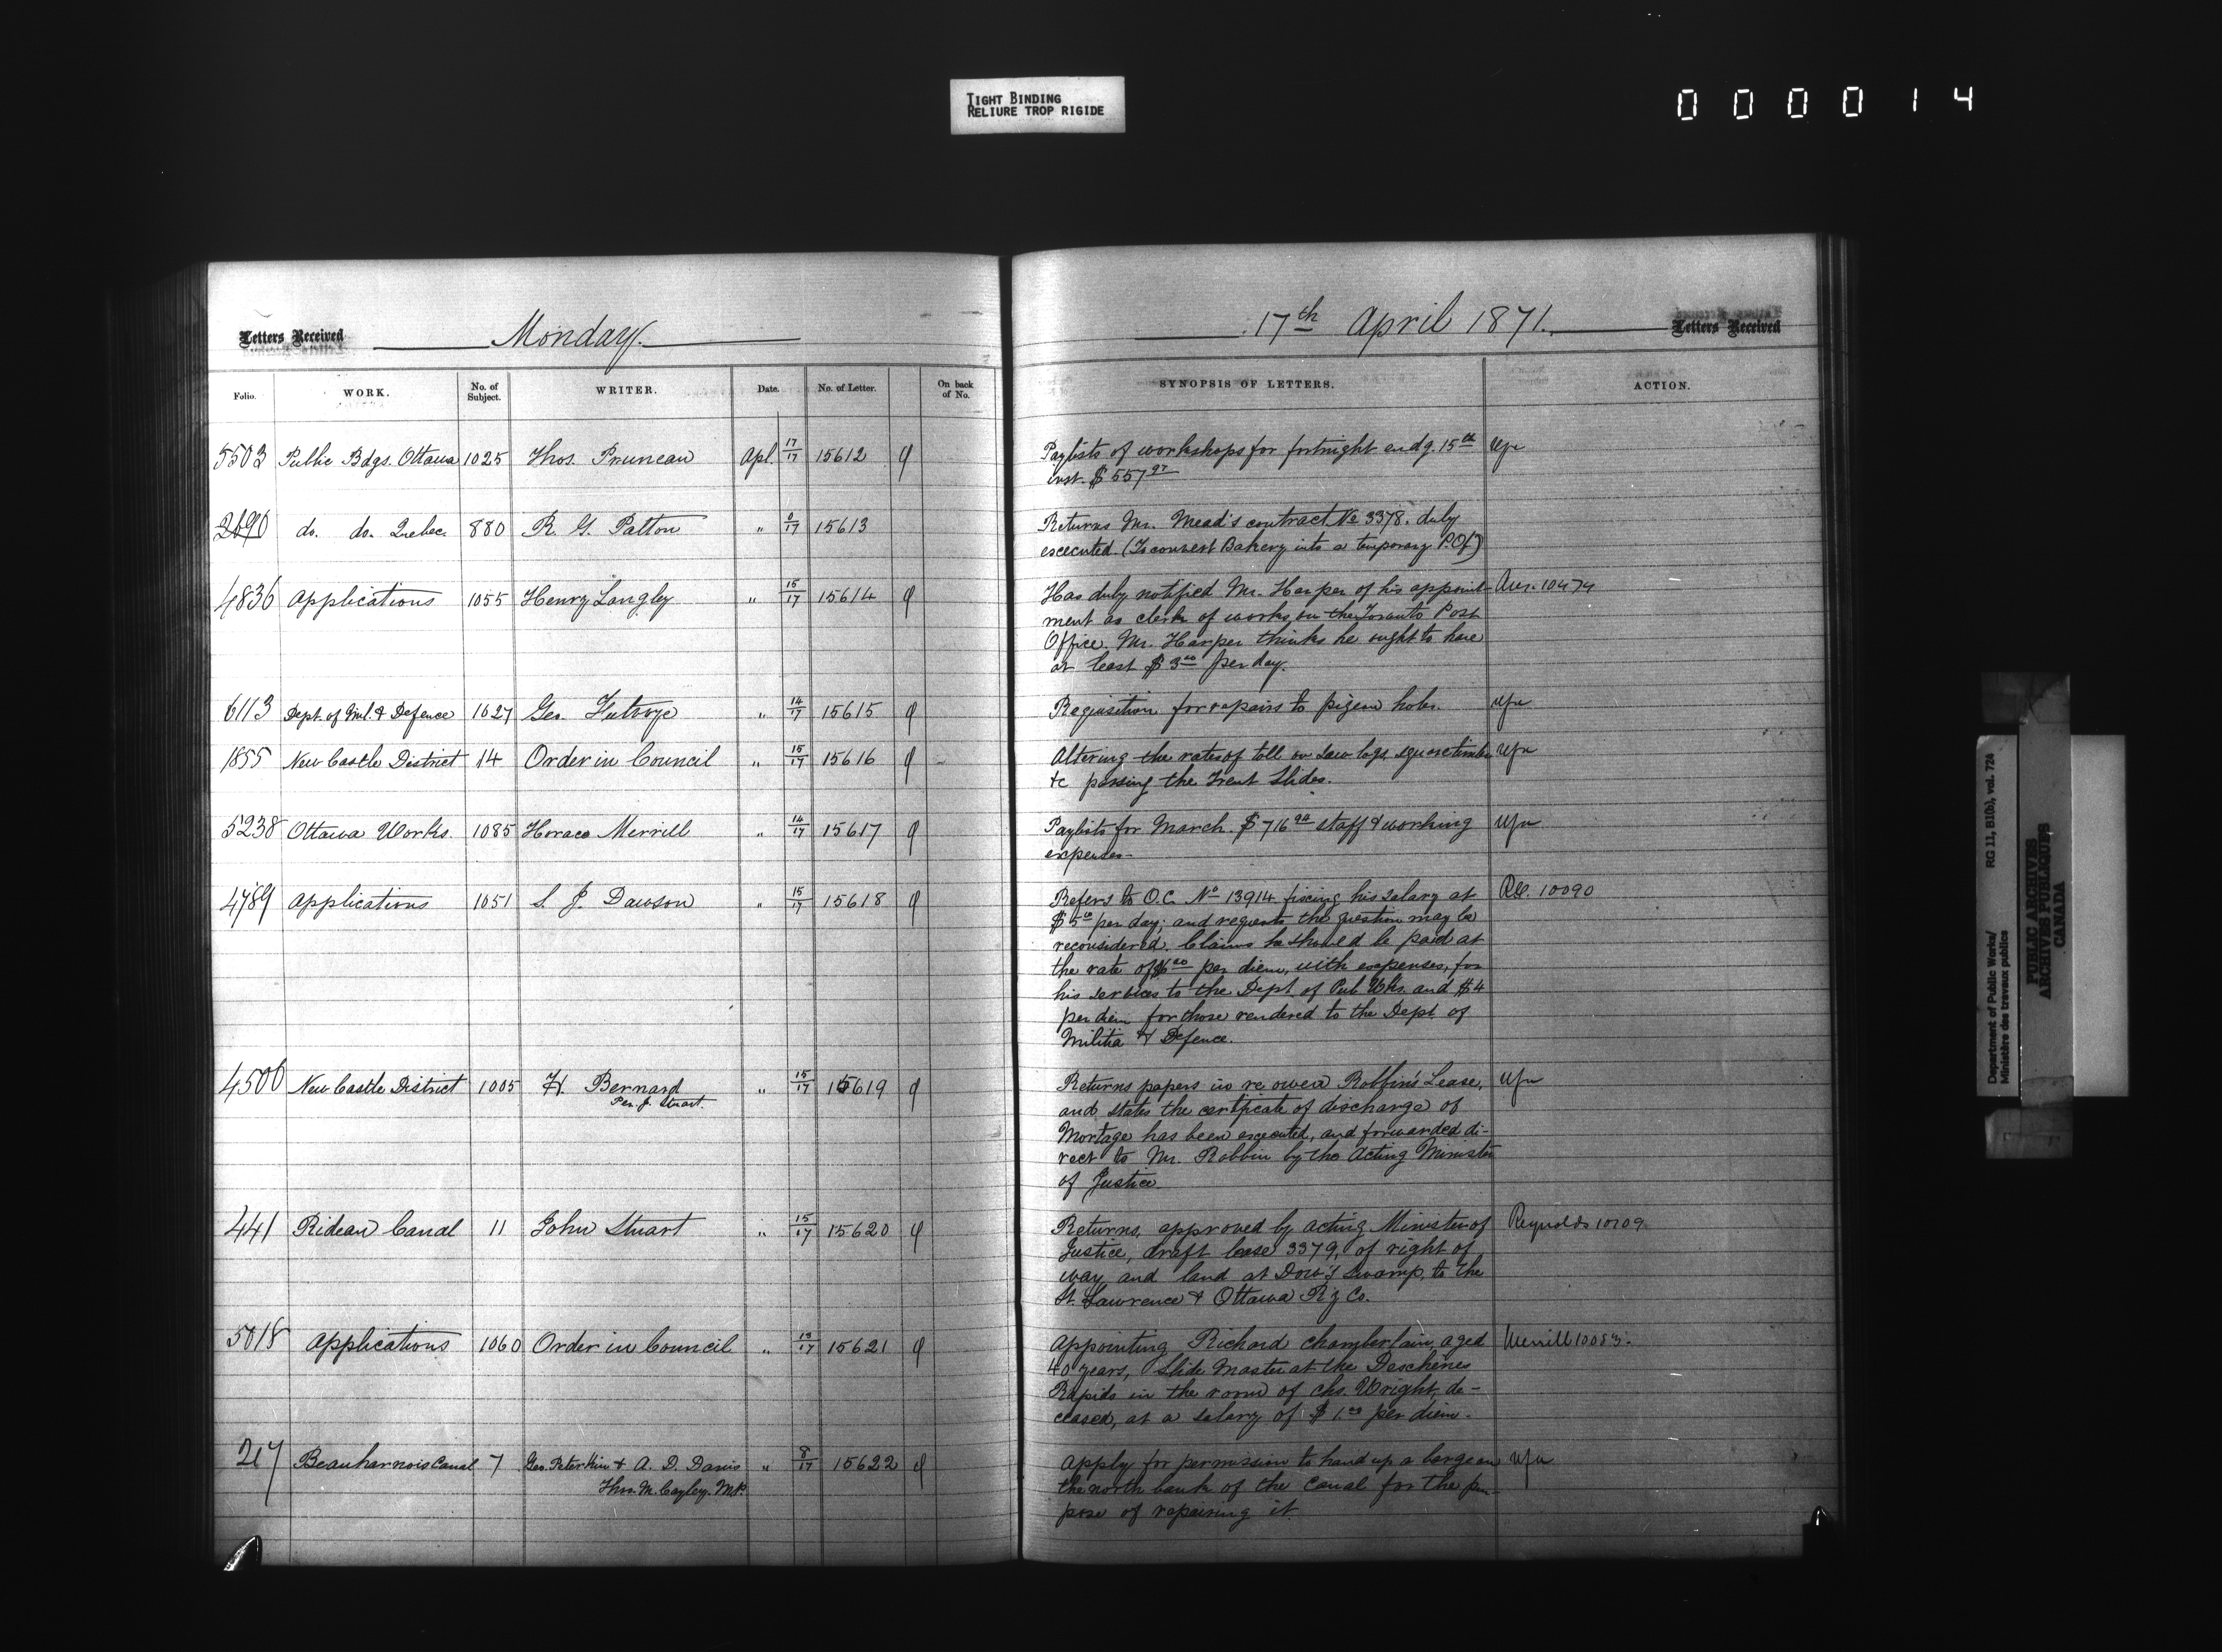 TIGHT BINDING
RELIURE TROP RIGIDE
0 0 0 0 1 4
Letters Received
Monday.
Folio. WORK. No. of Subject. WRITER. Date. No. of Letter. On back of No.
5503 Public Bdgs. Ottawa 1025 Thos. Pruneau Apl. 17/17 15612
2690 do. do. Quebec. 880 R. G. Patton " 8/17 15613
4836 Applications 1055 Henry Langley " 15/17 15614
6113 Dept. of Mil. & Defence 1027 Geo. Futvoye " 14/17 15615
1855 New Castle District 14 Order in Council " 15/17 15616
5238 Ottawa Works. 1085 Horace Merrill " 14/17 15617
4789 Applications 1051 S. J. Dawson " 15/17 15618
4506 New Castle District 1005 H. Bernard " 15/17 15619
Per. J. Stuart.
441 Rideau Canal 11 John Stuart " 15/17 15620
5018 Applications 1060 Order in Council " 13/17 15621
217 Beauharnois Canal 7 Geo. Peterkin & A. D. Davis " 8/17 15622
Thro. M. Cayley. M.P.
17th April 1871.
Letters Received
SYNOPSIS OF LETTERS. ACTION.
Paylists of workshops for fortnight endg. 15th
inst. $557 97
Returns Mr. Mead's contract No 3378. duly
excecuted. (To convert Bakery into a temporary P.Of.)
Has duly notified Mr. Harper of his appoint- 10474
ment as clerk of works on the Toronto Post
Office. Mr. Harper thinks he ought to have
at least $3 00 per day.
Requisition for repairs to pigeon holes.
Altering the rates of toll on saw logs, square timber
&c passing the Trent Slides.
Paylists for March. $716 94 staff & working
expenses-
Refers to O.C. No 13914 fixing his salary at 10090
$5 00 per day; and requests the question may be
reconsidered. Claims he should be paid at
the rate of $6 00 per diem, with expenses, for
his services to the Dept. of Pub. Wks. and $4
per diem for those rendered to the Dept. of
Militia & Defence.
Returns papers in re owen Robbin's Lease,
and states the certificate of discharge of
Mortage has been executed, and forwarded di-
rect to Mr. Robbin by the Acting Minister
of Justice.
Returns, approved by acting Minister of Reynolds 10109
Justice, draft lease 3379, of right of
way, and land at Dow's Swamp, to the
St. Lawrence & Ottawa Ry Co.
Appointing Richard Chamberlain, aged Merrill 10083.
40 years, Slide Master at the Deschênes
Rapids in the room of Chs. Wright, de-
ceased, at a salary of $1.00 per diem.
Apply for permission to haul up a barge on
the north bank of the canal for the pur-
pose of repairing it.
Department of Public Works/ RG 11, B1(b), vol. 724
Ministère des travaux publics
PUBLIC ARCHIVES
ARCHIVES PUBLIQUES
CANADA